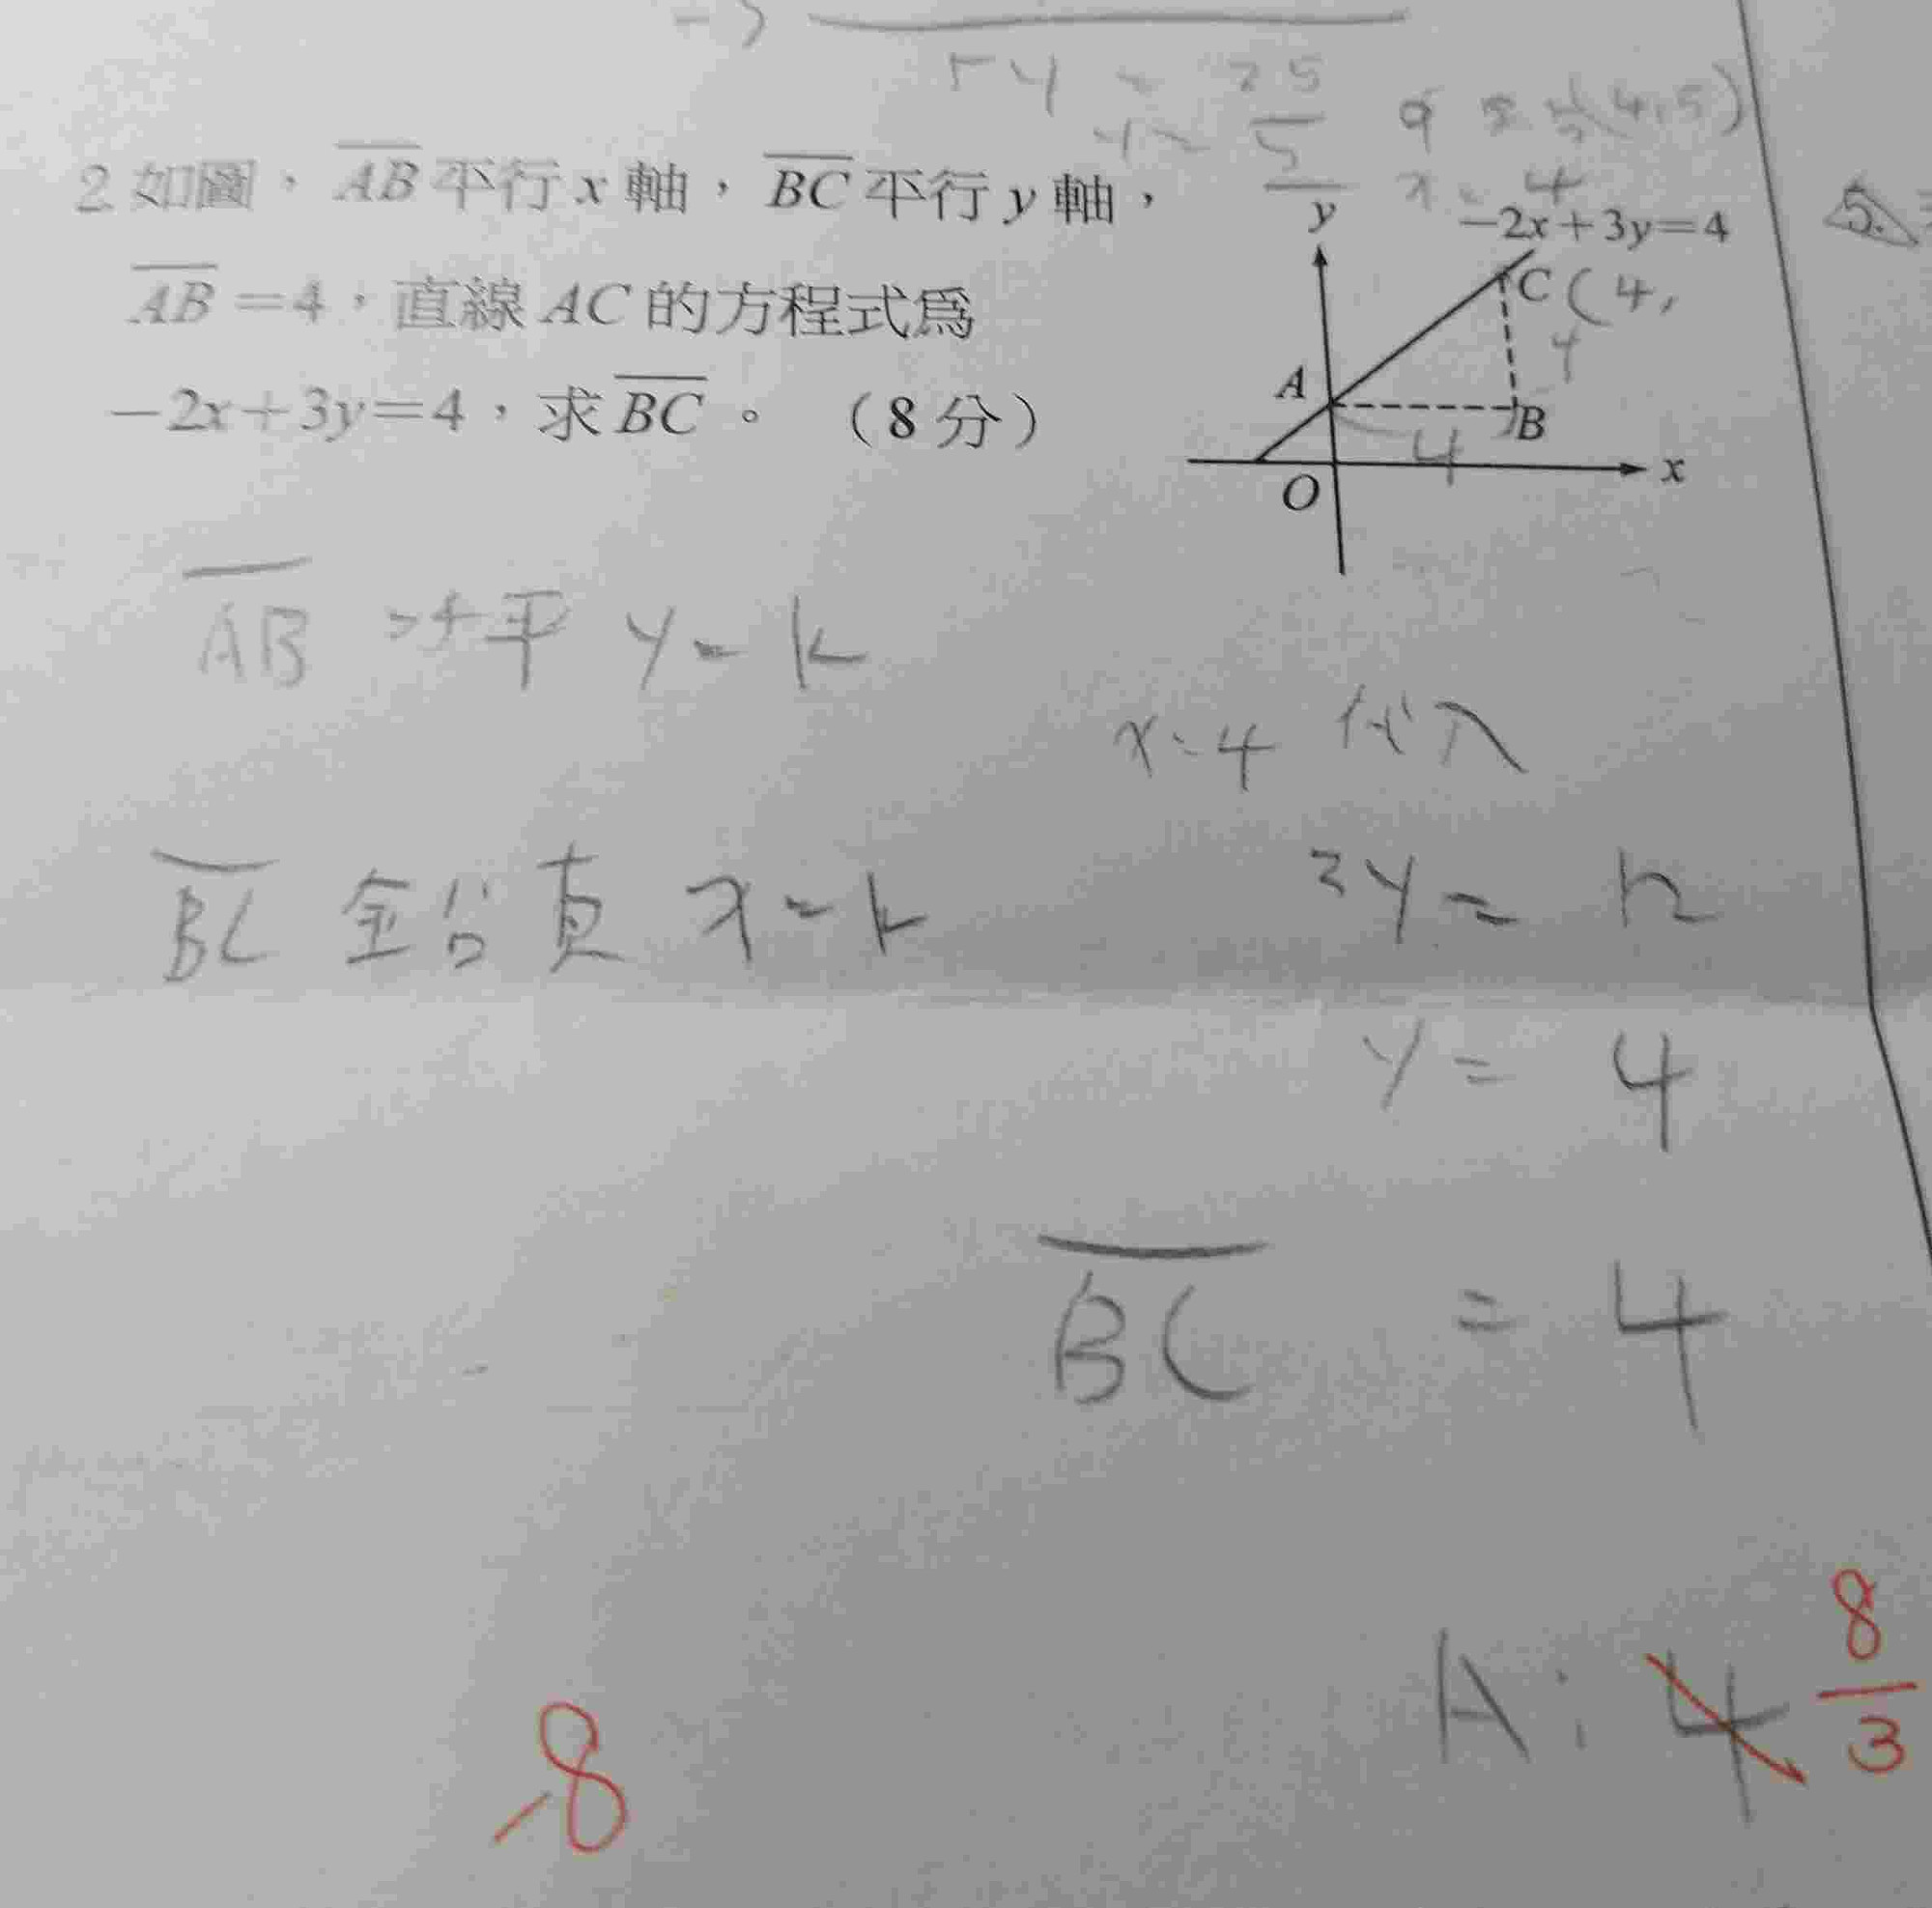 5y = 25
y = 5
(4,5)
x = 4
2 如圖，AB平行 x 軸，BC平行 y 軸，
AB=4，直線 AC 的方程式為
-2x+3y=4，求BC。（8 分）
y
-2x+3y=4
C (4,
4
A
B
4
x
O
5.
AB 水平 y=k
x=4 代入
BC 鉛直 x=k
3y = 12
y = 4
BC = 4
A: 4 8/3
-8